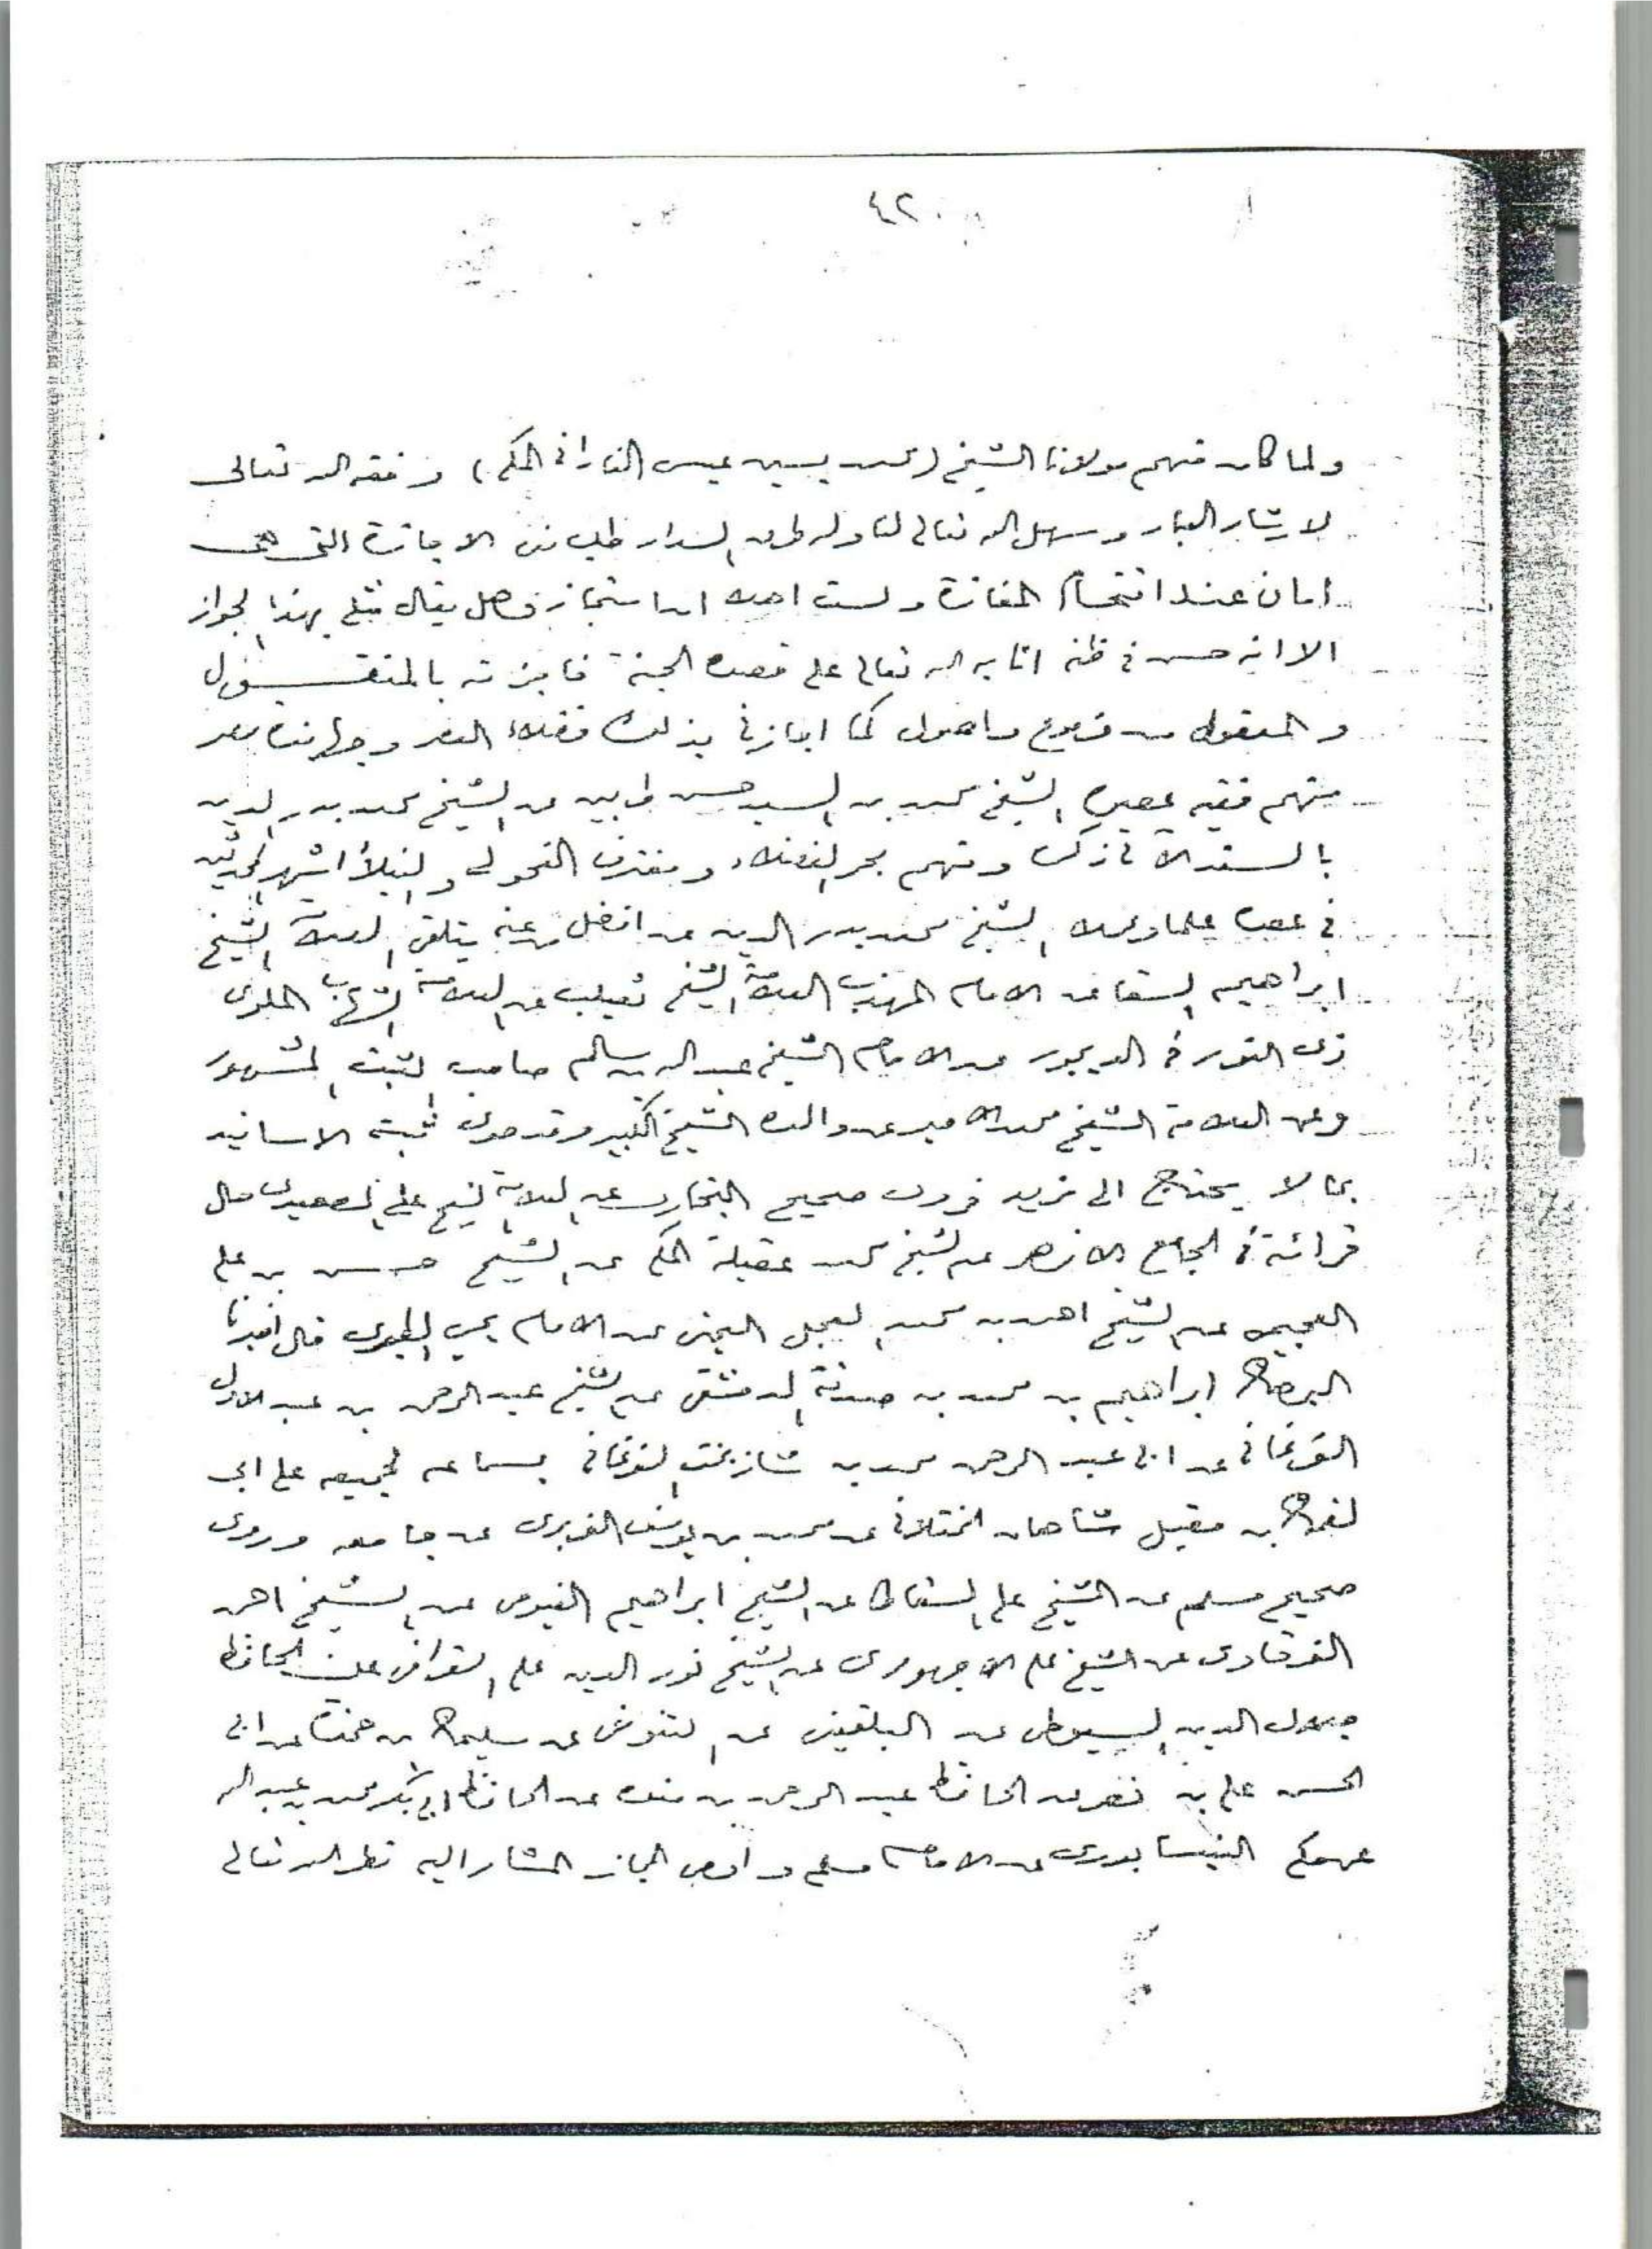 ٤٢٠
ولما كان منهم مولانا الشيخ (محمد يسين عيسى الفاداني المكي) وفقه الله تعالى
لايثار الثبات وسهل الله تعالى لنا وله طرق السداد طلب مني الاجازة التي هي
امان عند اقتحام المفازة ولست اهلا ان استجاز فهل يقال مثلي بهذا الجواز
الا انه حسن في ظنه اثابه الله تعالى على قصده الجنة فاجزته بالمنقول
والمعقول من فروع واصول كما اجازني بذلك فضلاء العصر وجهابذة مصر
منهم فقيه عصره الشيخ محمد بن السيد حسن عن الشيخ محمد بدر الدين
بالسند الآتي ذكره ومنهم بحر الفضلاء ومغترف الفحول والنبلاء اشهر المحدثين
في عصره علما وعملا الشيخ محمد بدر الدين عن افضل من عنه يتلقى العلامة الشيخ
ابراهيم السقا عن الامام المهذب العلامة الشيخ ثعيلب عن العلامة الشهاب الملوي
ذي النور في الديجور عن الامام الشيخ عبد الله بن سالم صاحب الثبت المشهور
وعن العلامة الشيخ محمد الامير عن والده الشيخ الكبير وقد حوى ثبته الاسانيد
بما لا يحتاج الى مزيد فروى صحيح البخاري عن العلامة الشيخ علي الصعيدي حال
قرائته في الجامع الازهر عن الشيخ محمد عقيلة المكي عن الشيخ حسن بن علي
العجيمي عن الشيخ احمد بن محمد العجل اليمني عن الامام يحيى الطبري قال اخبرنا
البرهان ابراهيم بن محمد بن صدقة الدمشقي عن الشيخ عبد الرحمن بن عبد الاول
الفرغاني عن ابي عبد الرحمن محمد بن شاذبخت الفرغاني بسماعه لجميعه على ابي
لقمان بن مقبل شاهان الختلاني عن محمد بن يوسف الفربري عن جامعه وروى
صحيح مسلم عن الشيخ علي السقاط عن الشيخ ابراهيم الفيومي عن الشيخ احمد
الفرقاوي عن الشيخ علي الاجهوري عن الشيخ نور الدين علي القرافي عن الحافظ
جلال الدين السيوطي عن البلقيني عن التنوخي عن سليمان بن حمزة عن ابي
الحسن علي بن نصر عن الحافظ عبد الرحمن بن منده عن الحافظ ابي بكر محمد بن عبد الله
عن مكي النيسابوري عن الامام مسلم واوصي المجاز المشار اليه نظر الله تعالى